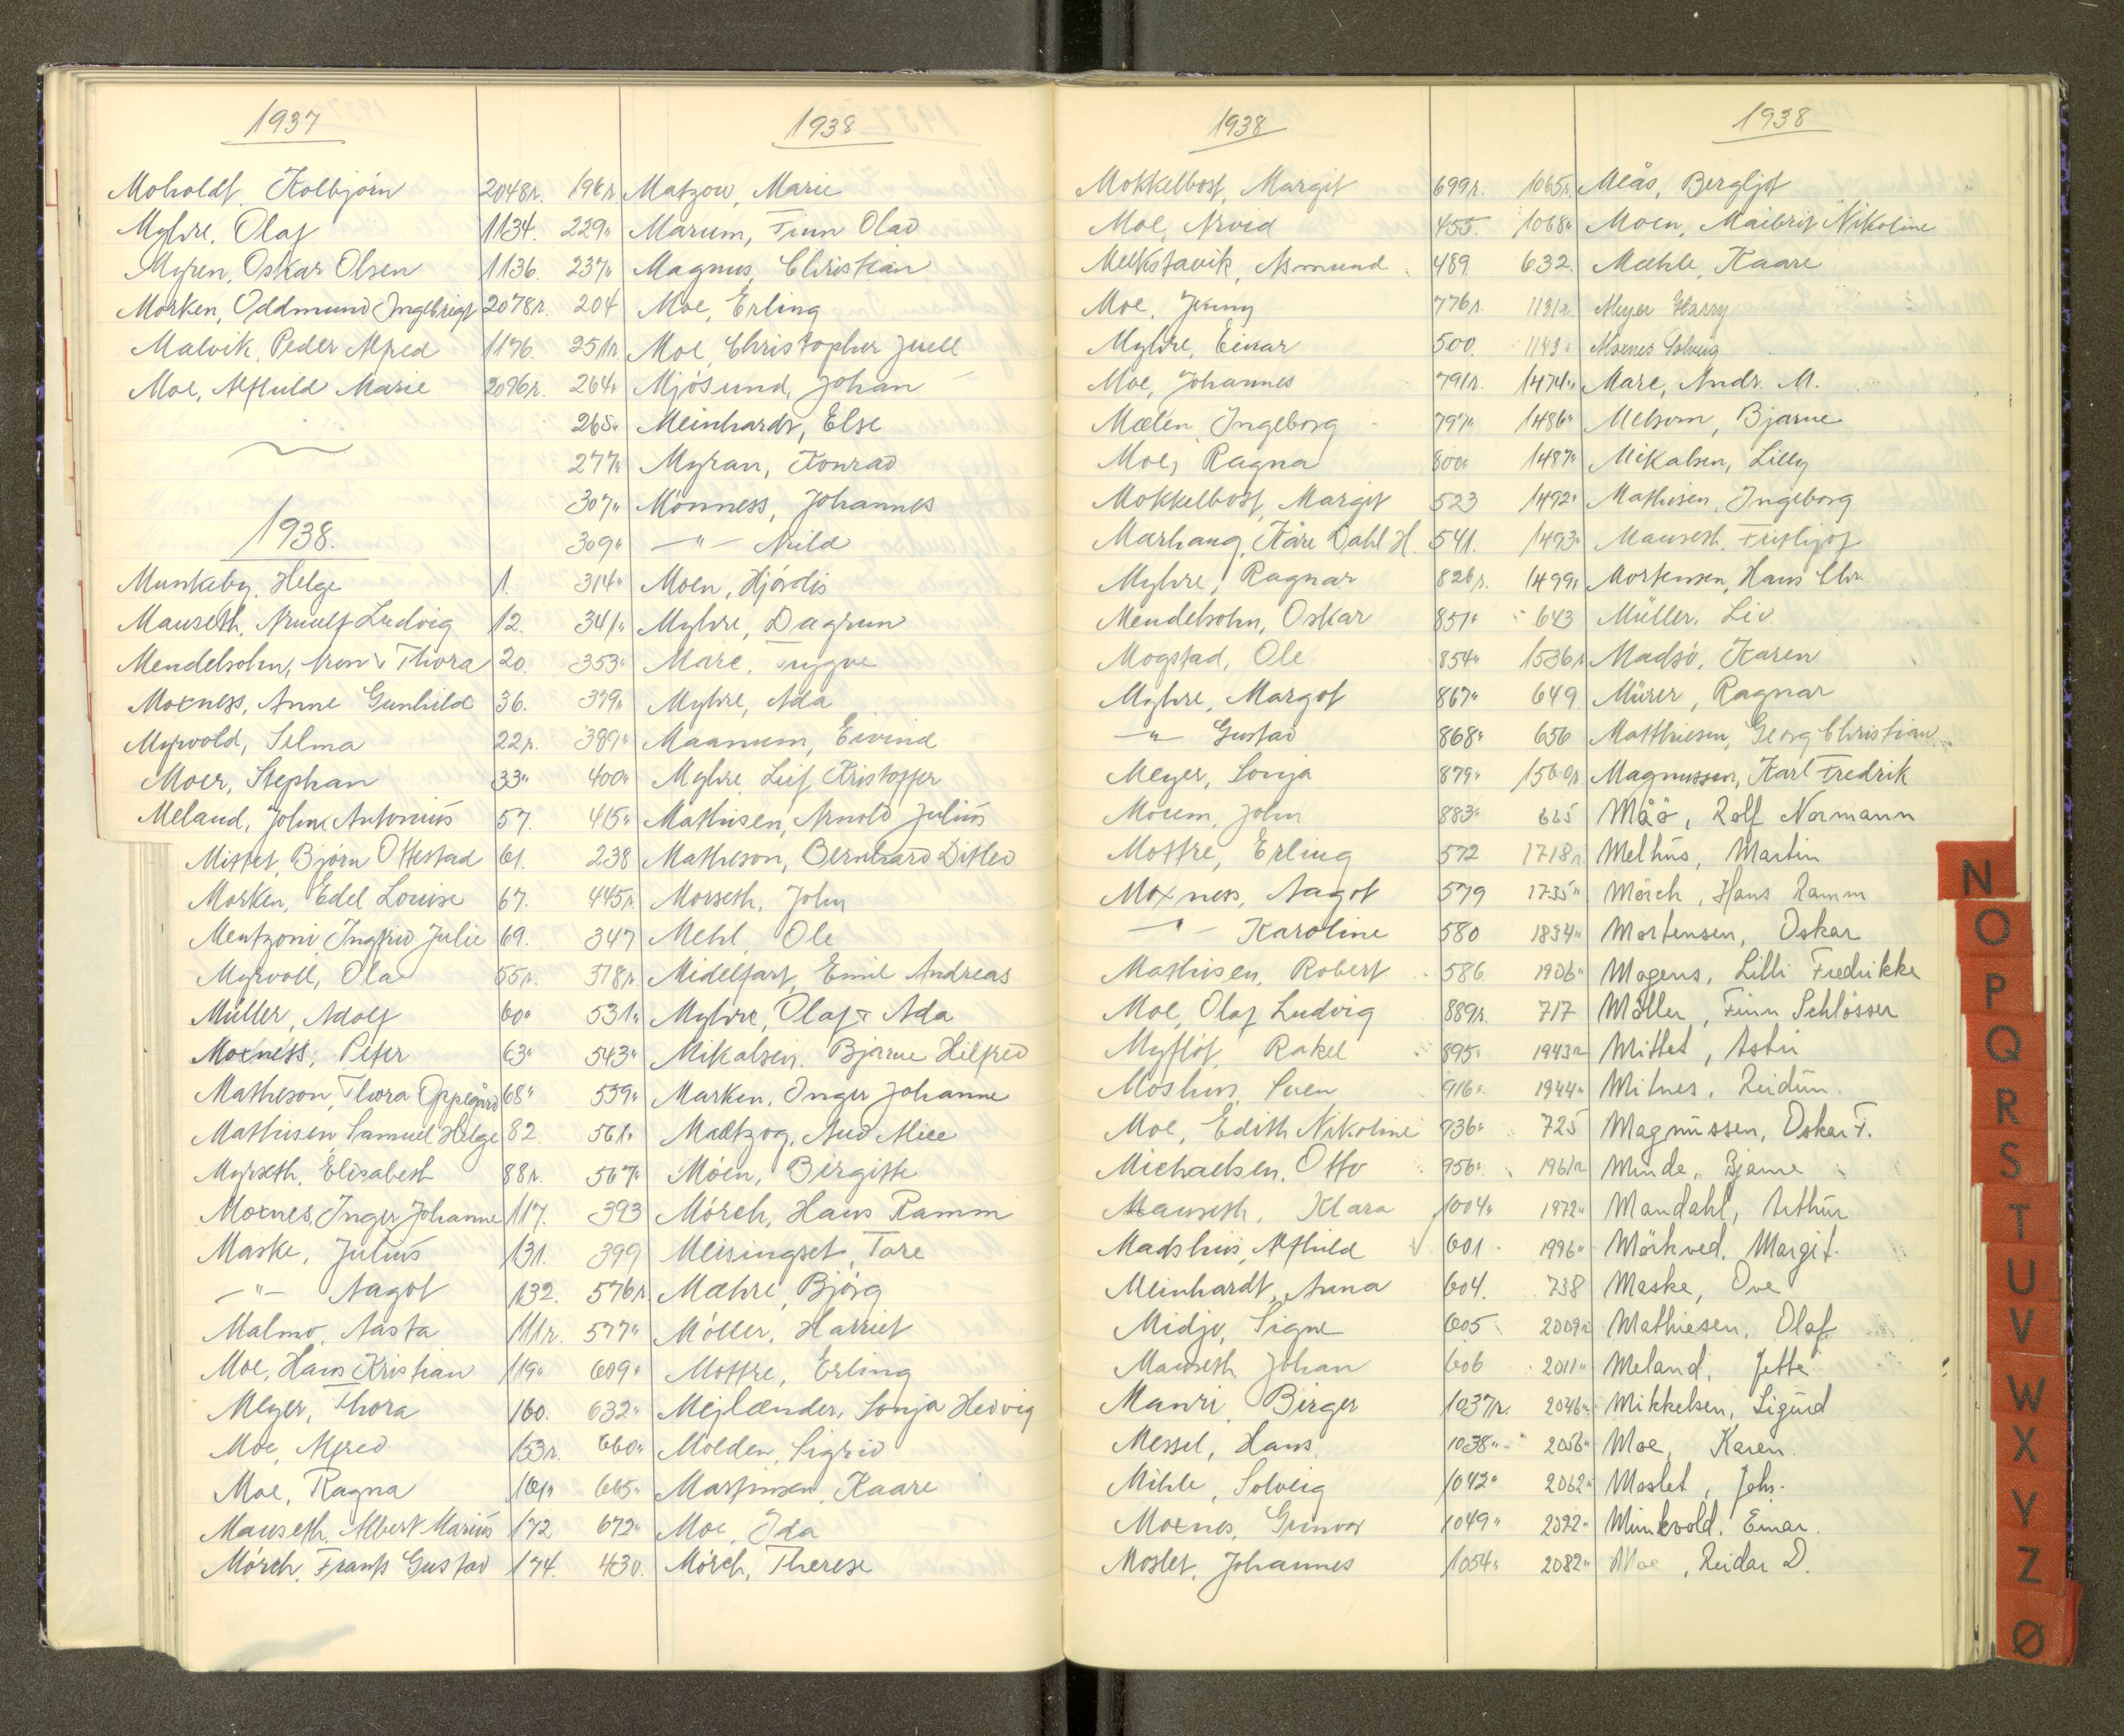 1937
Moholdt, Kolbjørn 2048r.
Myhre, Olaf 1134.
Myren, Oskar Olsen 1136.
Morken, Oddmund Ingebrigt 2078r.
Malvik, Peder Alfred 1176.
Moe, Alfhild Marie 2096r.
1938.
Munkeby, Helge 1.
Mauseth, Arnulf Ludvig 12.
Mendelsohn, Aron & Thora 20.
Moxness, Anne Gunhild 36.
Myrvold, Selma 22r.
Moer, Stephan 33"
Meland, John Antonius 57.
Mittet, Bjørn Ottestad 61.
Morken, Edel Louise 67.
Mentzoni Ingfrid Julie 69.
Myrvoll, Ola 55r.
Müller, Adolf 60"
Moxness, Peter 63"
Matheson, Thora Oppegård 68"
Mathisen Samuel Helge 82.
Myrseth, Elisabeth 88r.
Moxnes, Inger Johanne 117.
Maske, Julius 131.
—"— Aagot 132.
Malmo, Aasta 111r.
Moe, Hans Kristian 119"
Meyer, Thora 160.
Moe, Alfred 153r.
Moe, Ragna 161"
Mauseth, Albert Marius 172
Mørch, Frants Gustav 174.
1938
196r. Matzow, Marie
229" Marum, Finn Olav
237" Magnus, Christian
204 Moe, Erling
251r. Moe, Christopher Juell
264" Mjøsund, Johan
265" Meinhardt, Else
277" Myran, Konrad
307" Mönness, Johannes
309" —"— Arild
314" Moen, Hjørdis
341" Myhre, Dagrun
353" Mare, Trygve
379" Myhre, Ada
389" Maanum, Eivind
400" Myhre, Leif Kristoffer
415" Mathisen, Arnold Julius
238 Matheson, Bernhard Ditlev
445r. Morseth, John
347 Mehl, Ole
518r. Midelfart, Emil Andreas
531" Myhre, Olaf & Ada
543" Mikalsen, Bjarne Hilfred
559" Marken, Inger Johanne
561" Maltzog, Aud Alice
567" Moen, Birgitte
393 Mørch, Hans Ramm
399 Meisingset, Tore
576r. Mæhre, Bjørg
577" Møller, Harriet
609" Mostre, Erling
632" Mejlænder, Sonja Hedvig
660" Molden, Sigrid
665" Martinsen, Kaare
672" Moe, Ida
430. Mørch, Therese
1938
Mokkelbost, Margit 699r.
Moe, Arvid 455.
Melkstavik, Asmund 489
Moe, Jenny 776r.
Myhre, Einar 500.
Moe, Johannes 791r.
Mælen, Ingeborg 797"
Moe, Ragna 800"
Mokkelbost, Margit 523
Marhaug, Kåre Dahl H. 541.
Myhre, Ragnar 826r.
Mendelsohn, Oskar 851"
Mogstad, Ole 854"
Myhre, Margot 867"
—"— Gustav 868"
Meyer, Sonja 879"
Moum, John 883"
Mostre, Erling 572
Moxness, Aagot 579
—"— Karoline 580
Mathisen, Robert 586
Moe, Olaf Ludvig 889r.
Myrslot, Rakel 895"
Moshus, Sven 916"
Moe, Edith Nikoline 936"
Michaelsen, Otto 956"
Mauseth, Klara 1004"
Madshus, Alfhild 601
Meinhardt, Anna 604.
Midjo, Signe 605
Mauseth, Johan 606
Mauri, Birger 1037r.
Messel, Hans 1038"
Mihle, Solveig 1042"
Moxnes, Gunvor 1049"
Moslet, Johannes 1054"
1938
1065r. Meås, Bergljot
1068" Moen, Maibrit Nikoline
632. Mæhle, Kaare
1131r. Meyer Harry
1149" Moenes Solveig
1474" Mare, Andr. M.
1486" Melsom, Bjarne
1487" Mikalsen, Lilly
1492" Mathisen, Ingeborg
1493" Mauseth, Frithjof
1499" Mortensen, Hans Chr.
643 Müller, Liv
1536r Madsø, Karen
649 Mürer, Ragnar
656 Matthiesen, Georg Christian
1560r. Magnussen, Karl Fredrik
665 Måø, Rolf Normann
1718r Melhus, Martin
1735" Mørch, Hans Ramm
1834" Mortensen, Oskar
1906" Mogens, Lilli Fredrikke
717 Møller, Finn Schlösser
1943r Mittet, Astri
1944" Mitnes, Reidun.
725 Magnussen, Oskar F.
1961r Minde, Bjarne
1972" Mandahl, Arthur
1996" Mörkved, Margit.
738 Maske, Ove
2009r Mathiesen, Olaf
2011" Meland, Jette
2046" Mikkelsen, Sigurd
2056" Moe, Karen.
2062" Moslet, Johs.
2072" Munkvold, Einar.
2082" Moe, Reidar D.
N
O
P
Q
R
S
T
U
V
W
X
Y
Z
Ø